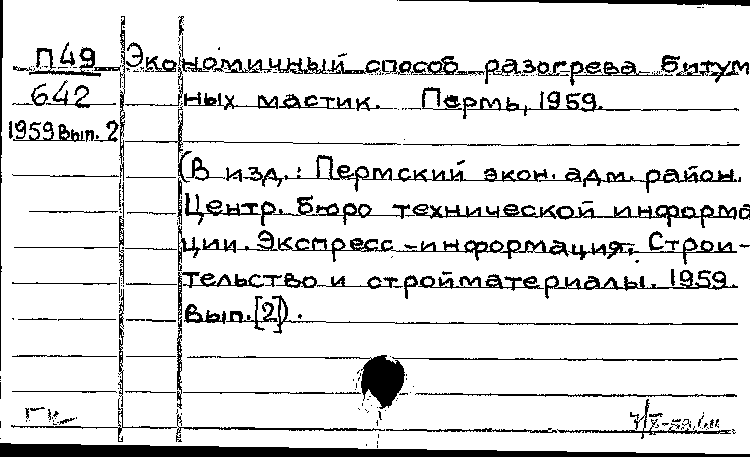 П49 Экономичный способ разогрева битум
642 ных мастик. Пермь, 1959.
1959 Вып. 2
(В изд.: Пермский экон. адм. район.
Центр. бюро технической информа
ции. Экспресс-информация. Строи-
тельство и стройматериалы. 1959.
Вып. [2]).